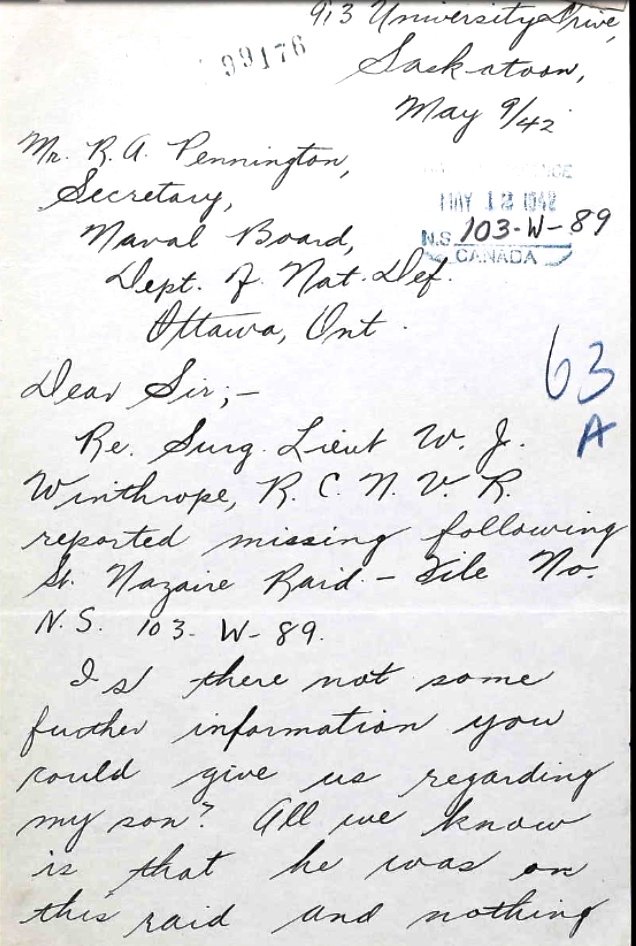 913 University Drive,
99176
Saskatoon,
May 9/42
Mr. R. A. Pennington,
Secretary,
Naval Board,
Dept. of Nat. Def.
Ottawa, Ont.
MAY 13 1942
N.S. 103-W-89
CANADA
63
A
Dear Sir;—
Re. Surg. Lieut W. J.
Winthrope, R. C. N. V. R.
reported missing following
St. Nazaire Raid – File No.
N. S. 103- W- 89.
Is there not some
further information you
could give us regarding
my son? All we know
is that he was on
this raid and nothing